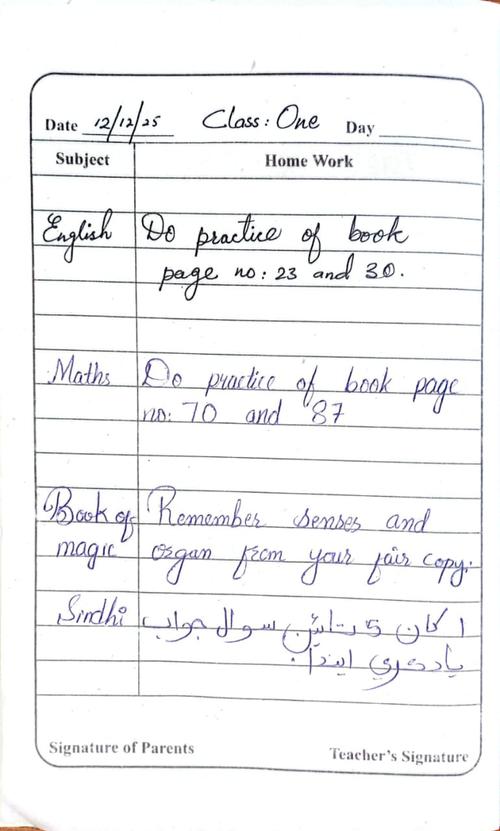 Date 12/12/25 Class: One Day
Subject Home Work
English Do practice of book
page no: 23 and 30.
Maths Do practice of book page
no: 70 and 87
Book of Remember senses and
magic organ from your fair copy.
Sindhi ا کان 5 تائين سوال جواب
ياد ڪري ايندا.
Signature of Parents Teacher's Signature